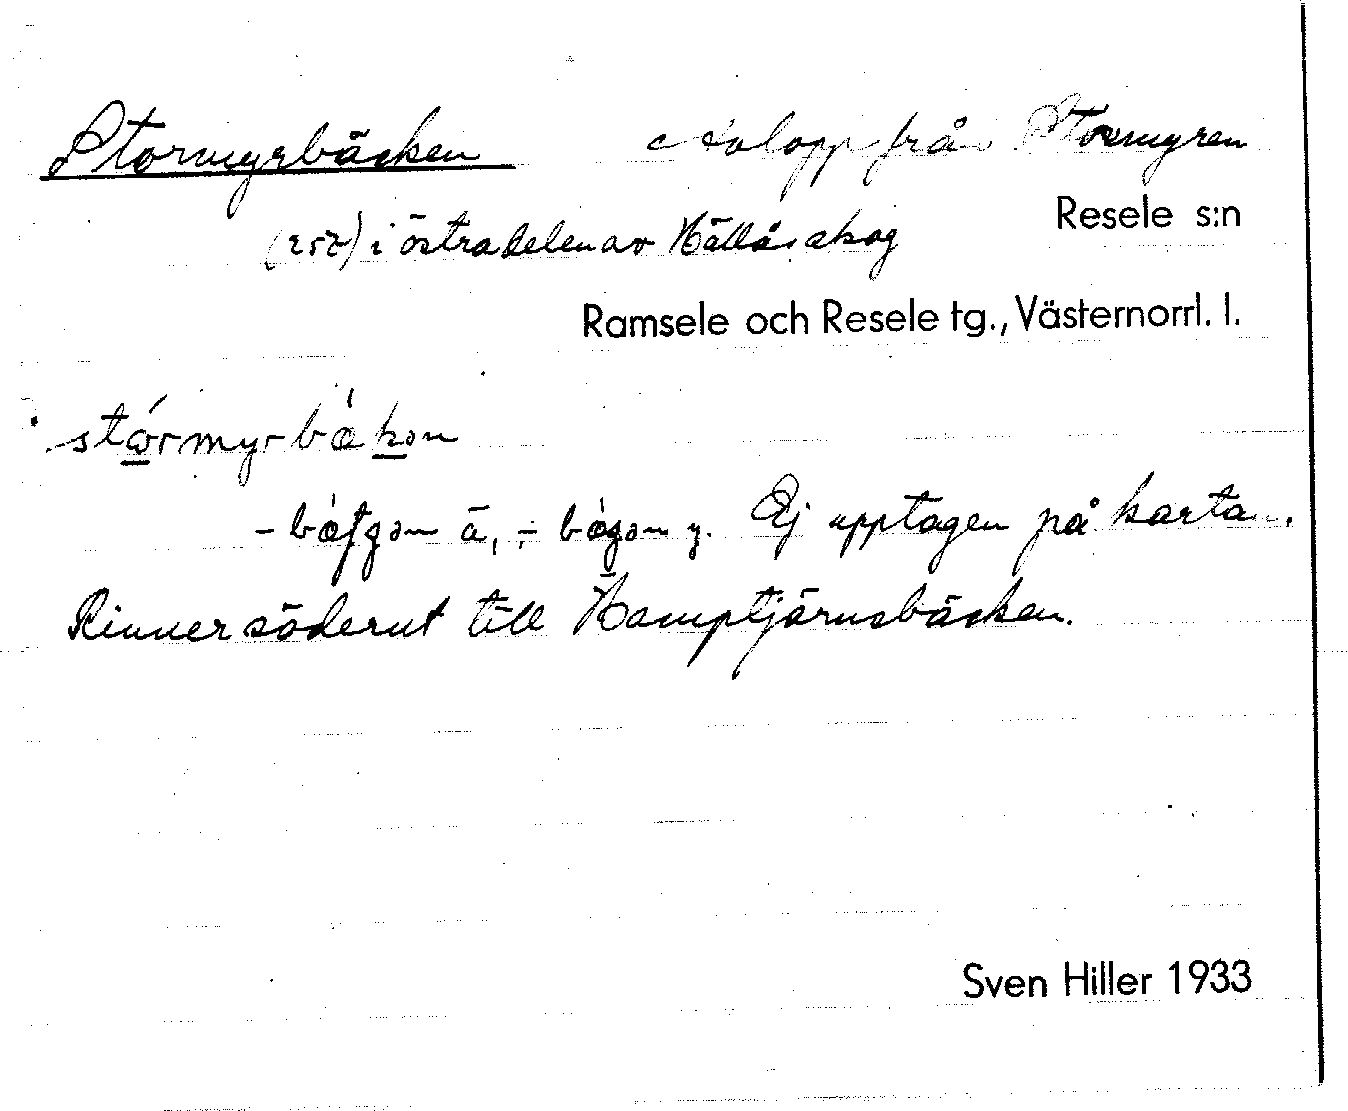 Stormyrbäcken Avlopp från Stormyren
Resele s:n
(252) i östra delen av Hällåsskog
Ramsele och Resele tg., Västernorrl. l.
stórmyrbækən
-bæʃgən ä, -bægən y. Ej upptagen på kartan.
Rinner söderut till Kamptjärnsbäcken.
Sven Hiller 1933